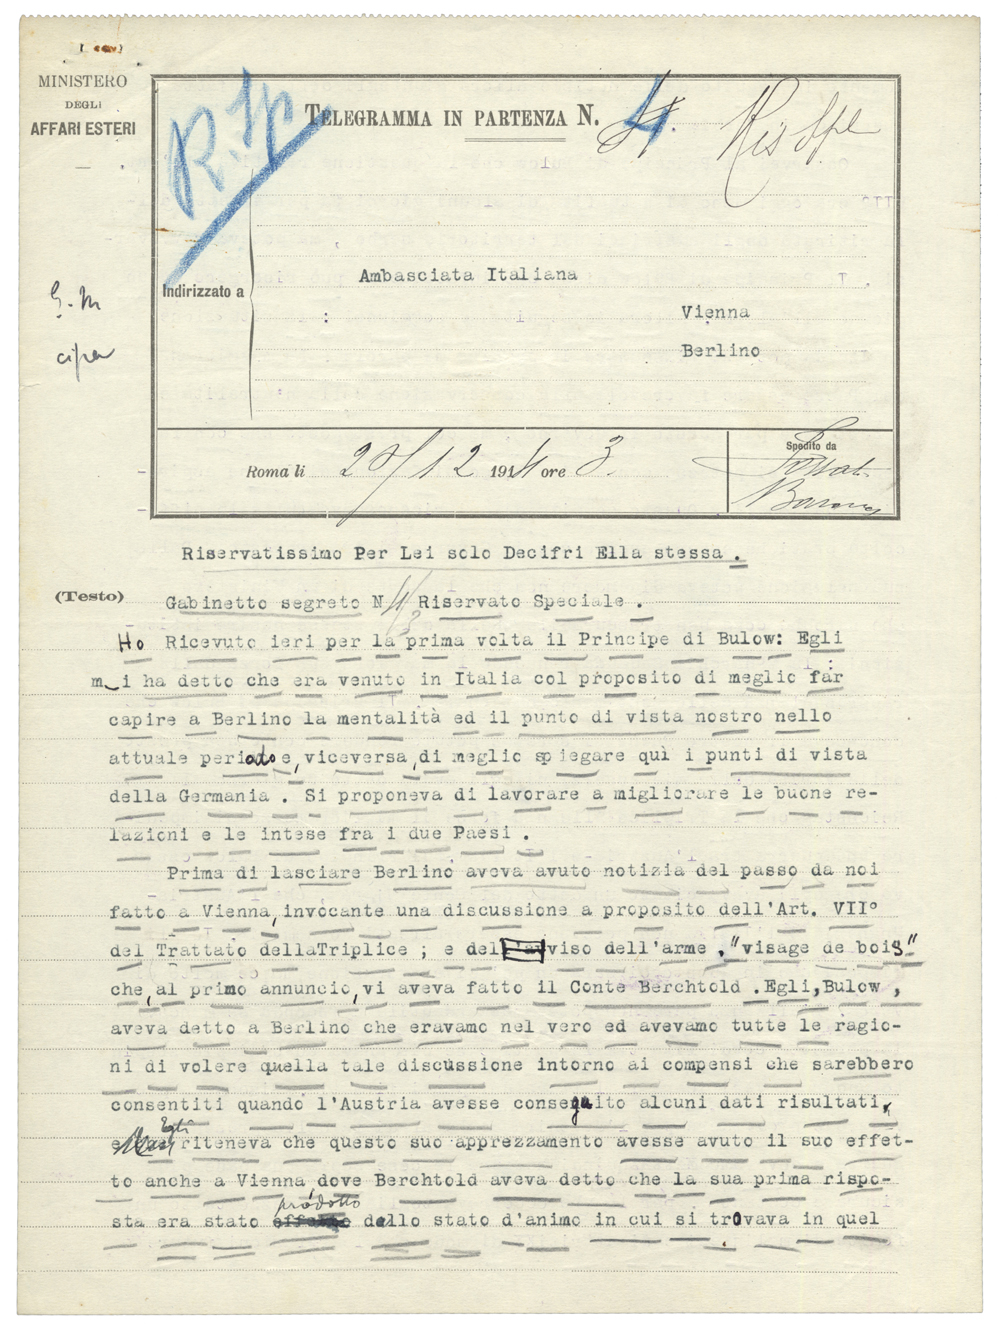 MINISTERO
DEGLI
AFFARI ESTERI
R. Sp
TELEGRAMMA IN PARTENZA N. 4. Ris Spl
Indirizzato a
Ambasciata Italiana
Vienna
Berlino
G. M
cifra
Roma li 20/12 1914 ore 3.
Spedito da
Riservatissimo Per Lei solo Decifri Ella stessa .
(Testo)
Gabinetto segreto N Riservato Speciale .
Ho Ricevuto ieri per la prima volta il Principe di Bulow: Egli
m i ha detto che era venuto in Italia col proposito di meglio far
capire a Berlino la mentalità ed il punto di vista nostro nello
attuale periodo e, viceversa, di meglio spiegare quì i punti di vista
della Germania . Si proponeva di lavorare a migliorare le buone re-
lazioni e le intese fra i due Paesi .
Prima di lasciare Berlino aveva avuto notizia del passo da noi
fatto a Vienna, invocante una discussione a proposito dell'Art. VII°
del Trattato dellaTriplice ; e del viso dell'arme , "visage de bois"
che, al primo annuncio, vi aveva fatto il Conte Berchtold .Egli, Bulow ,
aveva detto a Berlino che eravamo nel vero ed avevamo tutte le ragio-
ni di volere quella tale discussione intorno ai compensi che sarebbero
consentiti quando l'Austria avesse conseguito alcuni dati risultati,
Egli riteneva che questo suo apprezzamento avesse avuto il suo effet-
to anche a Vienna dove Berchtold aveva detto che la sua prima rispo-
sta era stato prodotto dallo stato d'animo in cui si trovava in quel